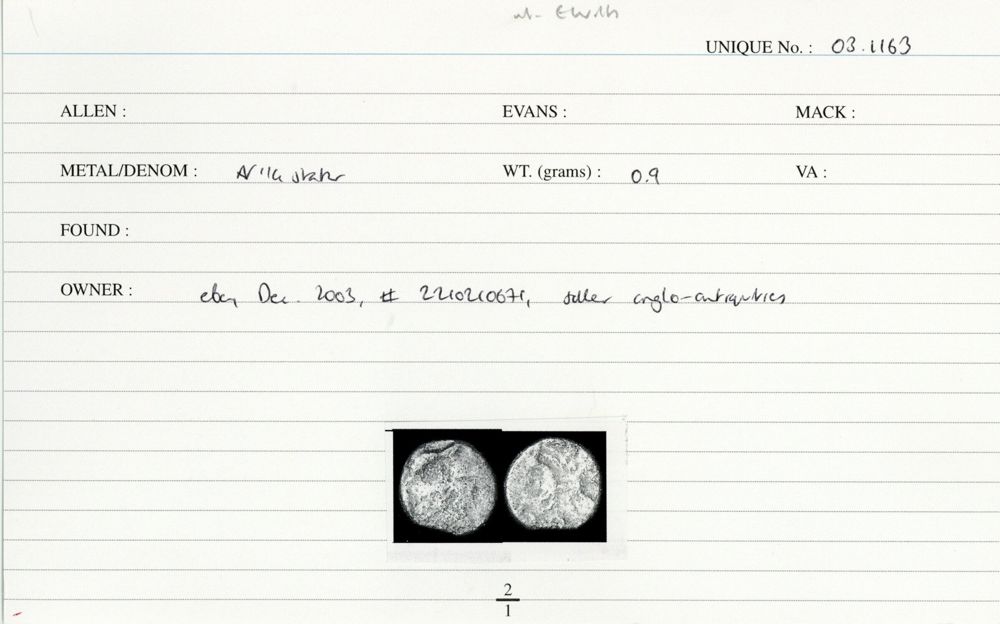 UNIQUE No. : 03.1163
ALLEN : EVANS : MACK :
METAL/DENOM : stater WT. (grams) : 0.9 VA :
FOUND :
OWNER : ebay Dec. 2003, # 2210210671, seller anglo-antiquities
2
1